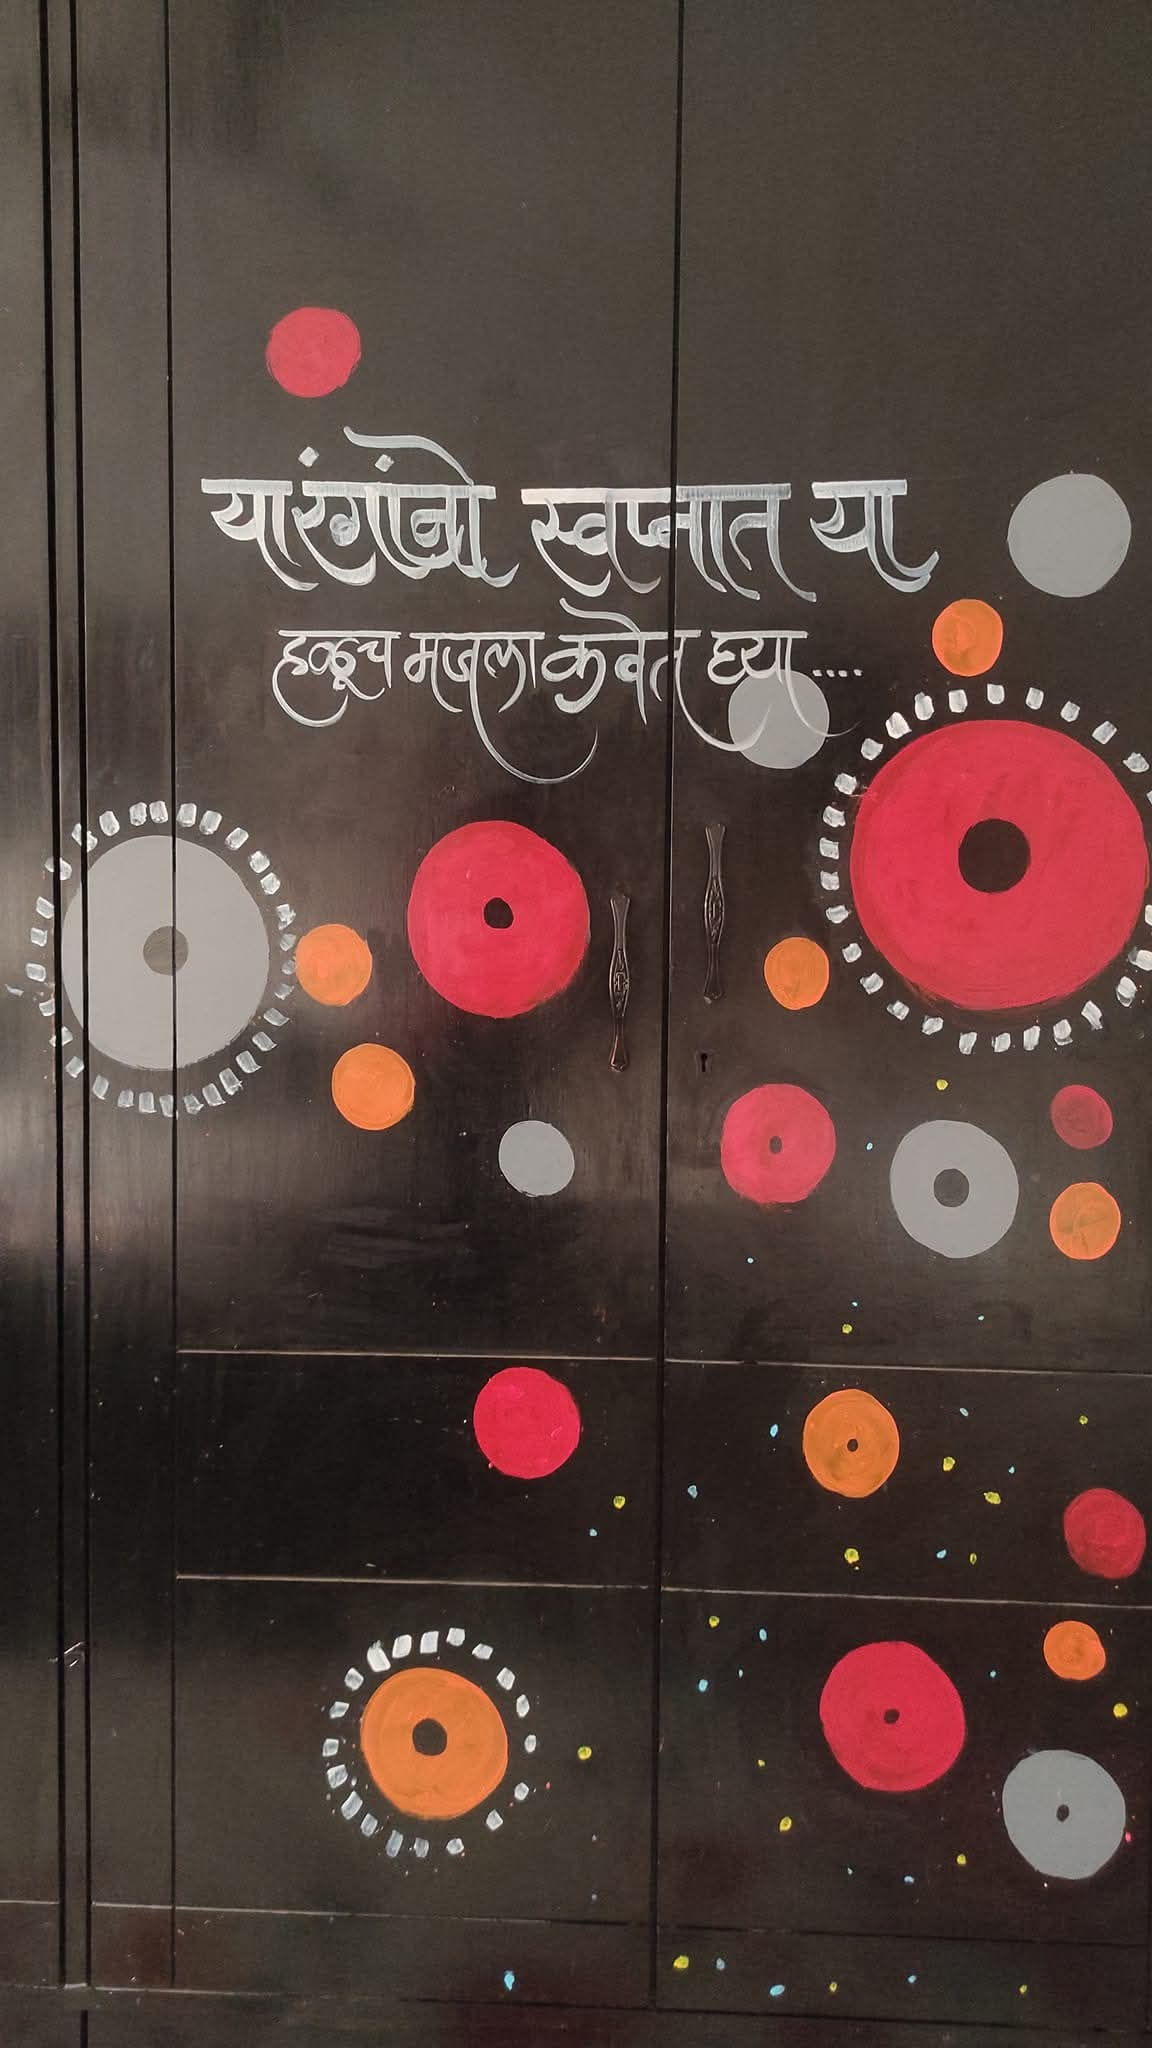 या रंगांनो स्वप्नात या
हळूच मजला कवेत घ्या....